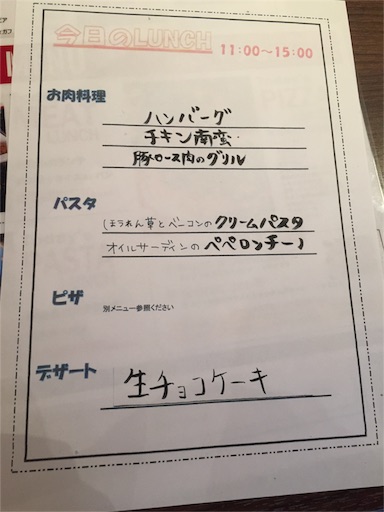 今日のLUNCH 11:00~15:00
お肉料理
ハンバーグ
チキン南蛮
豚ロース肉のグリル
パスタ
ほうれん草とベーコンのクリームパスタ
オイルサーディンのペペロンチーノ
ピザ
別メニュー参照ください
デザート
生チョコケーキ